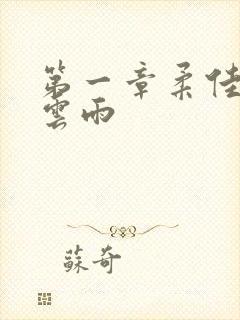 第一章柔佳
雲雨
蘇奇